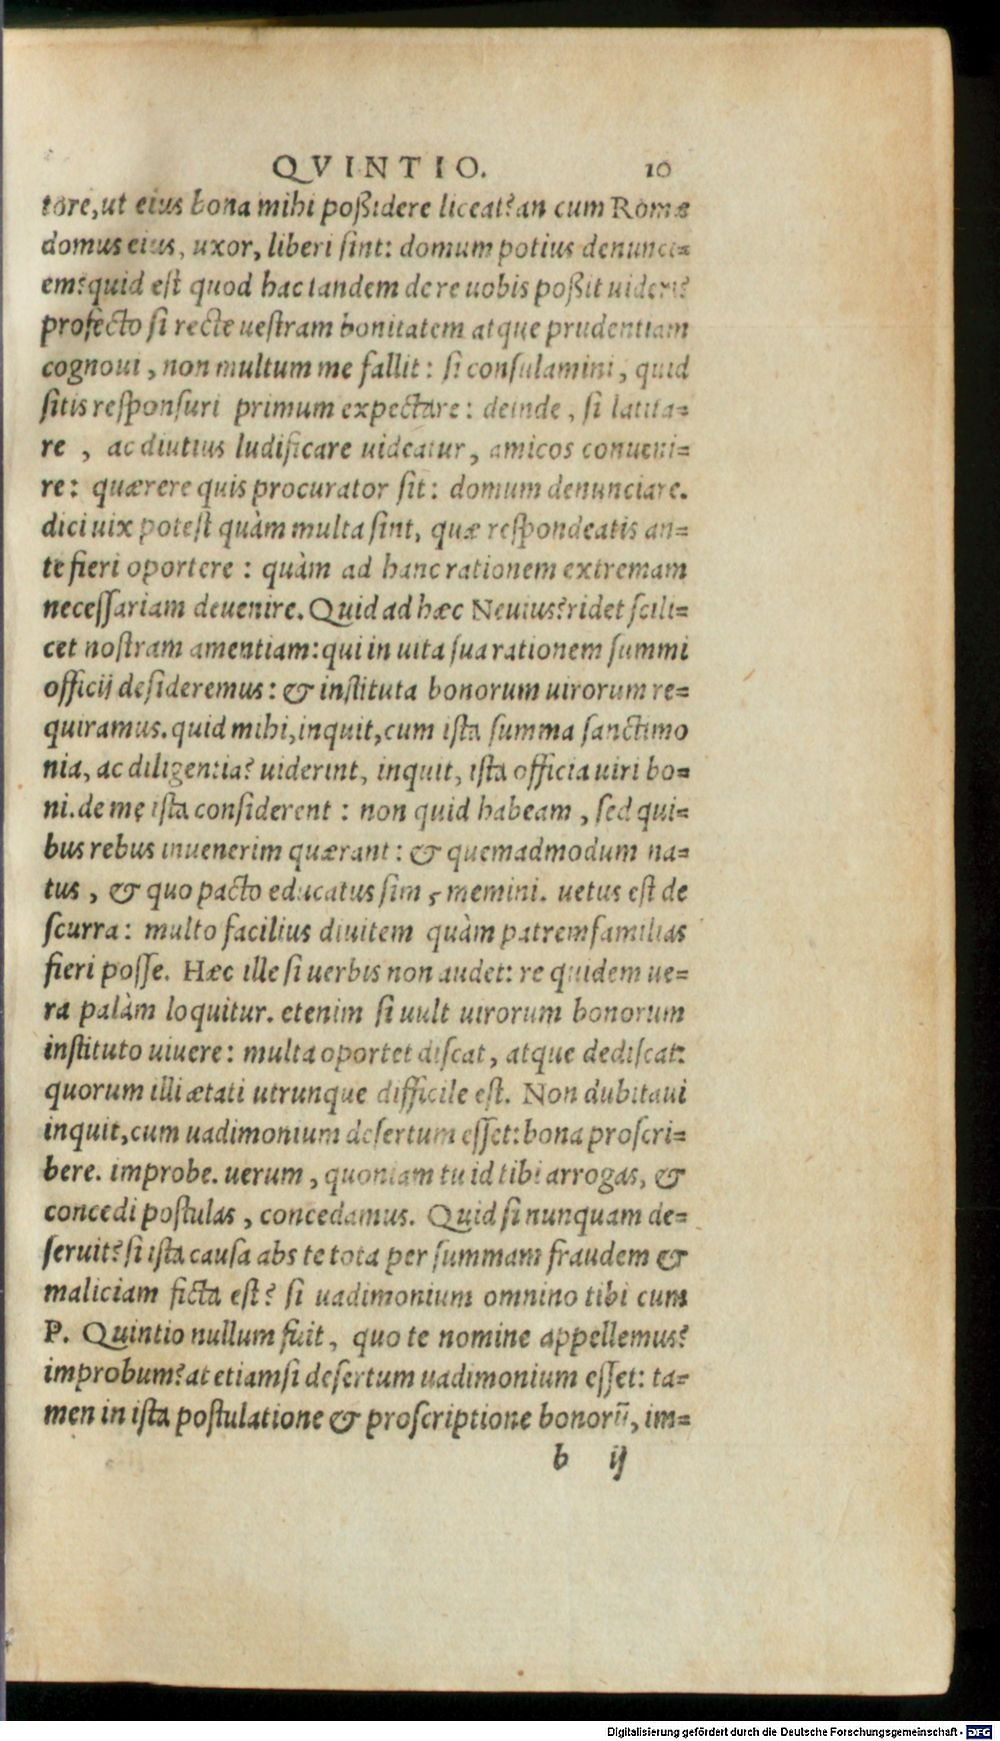 QVINTIO. 10
tore, ut eius bona mihi poßidere liceat? an cum Romæ
domus eius, uxor, liberi sint: domum potius denunci=
em? quid est quod hac tandem de re uobis poßit uideri?
profecto si recte uestram bonitatem atque prudentiam
cognoui, non multum me fallit: si consulamini, quid
sitis responsuri primum expectare: deinde, si latita=
re, ac diutius ludificare uideatur, amicos conueni=
re: quærere quis procurator sit: domum denunciare.
dici uix potest quàm multa sint, quæ respondeatis an=
te fieri oportere: quàm ad hanc rationem extremam
necessariam deuenire. Quid ad hæc Neuius? ridet scili=
cet nostram amentiam: qui in uita sua rationem summi
officij desideremus: & instituta bonorum uirorum re=
quiramus. quid mihi, inquit, cum ista summa sanctimo
nia, ac diligentia? uiderint, inquit, ista officia uiri bo=
ni. de me ista considerent: non quid habeam, sed qui=
bus rebus inuenerim quærant: & quemadmodum na=
tus, & quo pacto educatus sim, memini. uetus est de
scurra: multo facilius diuitem quàm patremfamilias
fieri posse. Hæc ille si uerbis non audet: re quidem ue=
ra palàm loquitur. etenim si uult uirorum bonorum
instituto uiuere: multa oportet discat, atque dediscat:
quorum illi ætati utrunque difficile est. Non dubitaui
inquit, cum uadimonium desertum esset: bona proscri=
bere. improbe. uerum, quoniam tu id tibi arrogas, &
concedi postulas, concedamus. Quid si nunquam de=
seruit? si ista causa abs te tota per summam fraudem &
maliciam ficta est? si uadimonium omnino tibi cum
P. Quintio nullum fuit, quo te nomine appellemus?
improbum? at etiamsi desertum uadimonium esset: ta=
men in ista postulatione & proscriptione bonorū, im=
b ij
Digitalisierung gefördert durch die Deutsche Forschungsgemeinschaft - DFG